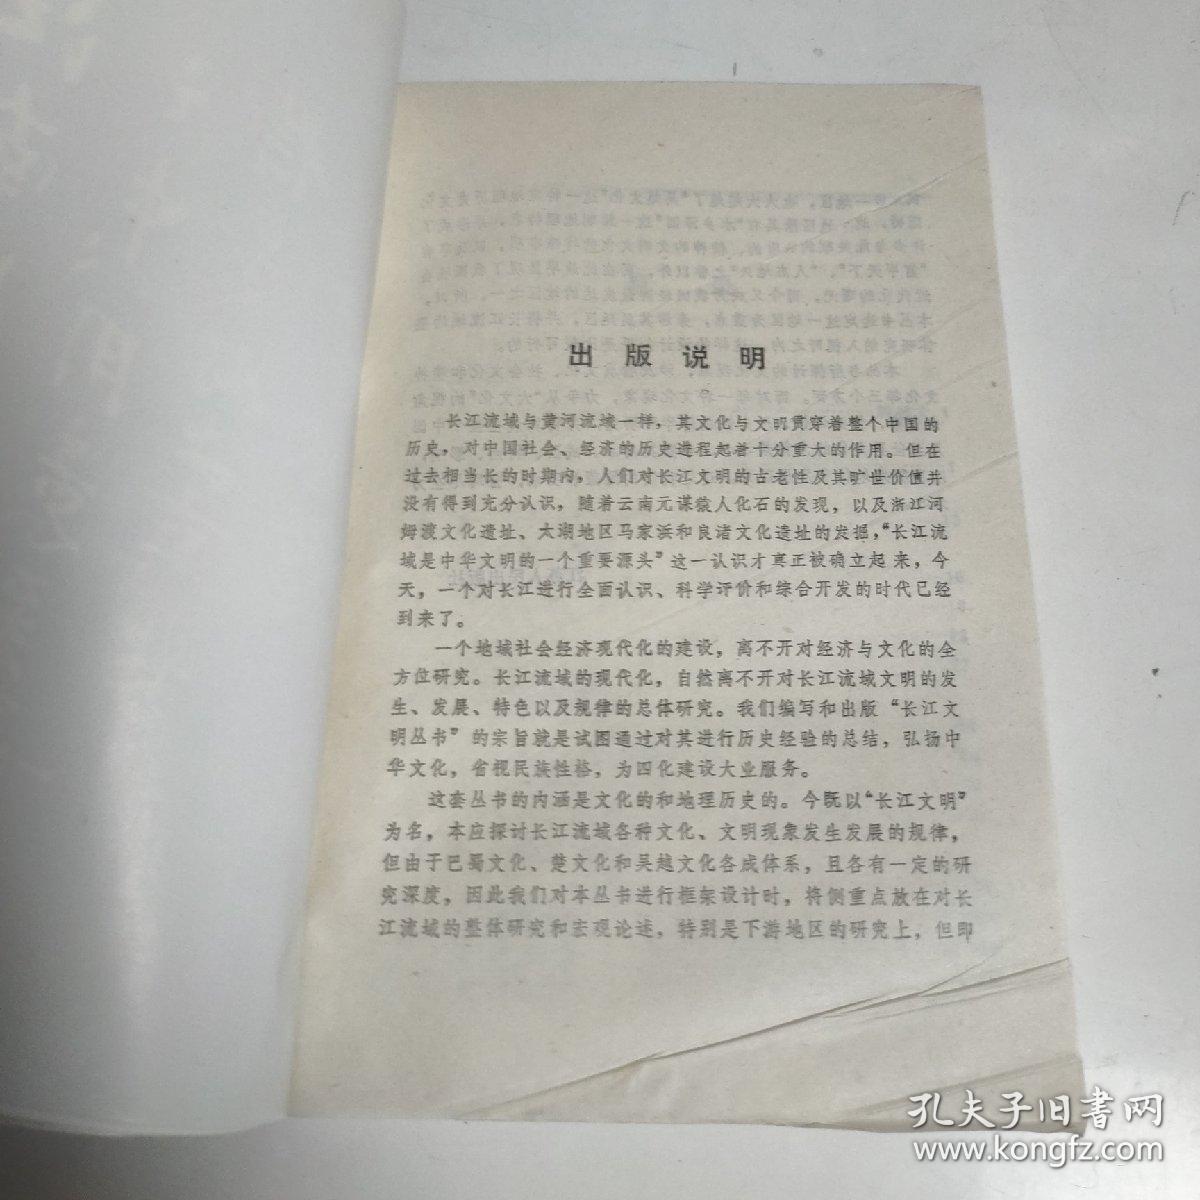 出版说明
长江流域与黄河流域一样，其文化与文明贯穿着整个中国的
历史，对中国社会、经济的历史进程起着十分重大的作用。但在
过去相当长的时期内，人们对长江文明的古老性及其旷世价值并
没有得到充分认识，随着云南元谋猿人化石的发现，以及浙江河
姆渡文化遗址、太湖地区马家浜和良诸文化遗址的发掘，“长江流
域是中华文明的一个重要源头”这一认识才真正被确立起来，今
天，一个对长江进行全面认识、科学评价和综合开发的时代已经
到来了。
一个地域社会经济现代化的建设，离不开对经济与文化的全
方位研究。长江流域的现代化，自然离不开对长江流域文明的发
生、发展、特色以及规律的总体研究。我们编写和出版“长江文
明丛书”的宗旨就是试图通过对其进行历史经验的总结，弘扬中
华文化，省视民族性格，为四化建设大业服务。
这套丛书的内涵是文化的和地理历史的。今既以“长江文明”
为名，本应探讨长江流域各种文化、文明现象发生发展的规律，
但由于巴蜀文化、楚文化和吴越文化各成体系，且各有一定的研
究深度，因此我们对本丛书进行框架设计时，将侧重点放在对长
江流域的整体研究和宏观论述，特别是下游地区的研究上，但即
孔夫子旧书网
www.kongfz.com